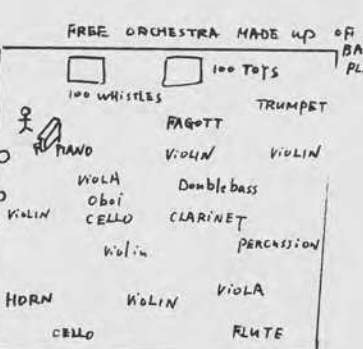 FREE ORCHESTRA MADE UP OF
BA
PL
100 TOYS
100 WHISTLES
TRUMPET
FAGOTT
PIANO
VIOLIN VIOLIN
VIOLA
Doublebass
Oboi
VIOLIN CELLO CLARINET
Violin
PERCUSSION
HORN VIOLIN VIOLA
CELLO FLUTE